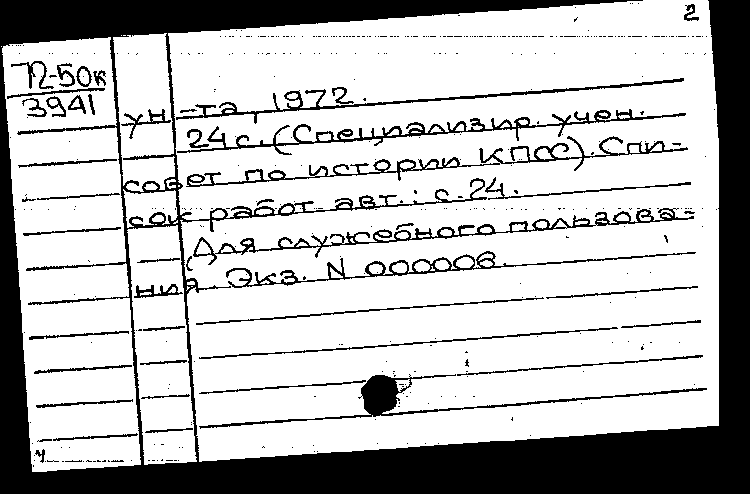 2
72-50к
3941
ун-та, 1972.
24 с. (Специализир. учен.
совет по истории КПСС). Спи-
сок работ авт.: с. 24.
Для служебного пользова-
ния. Экз. N 000006.